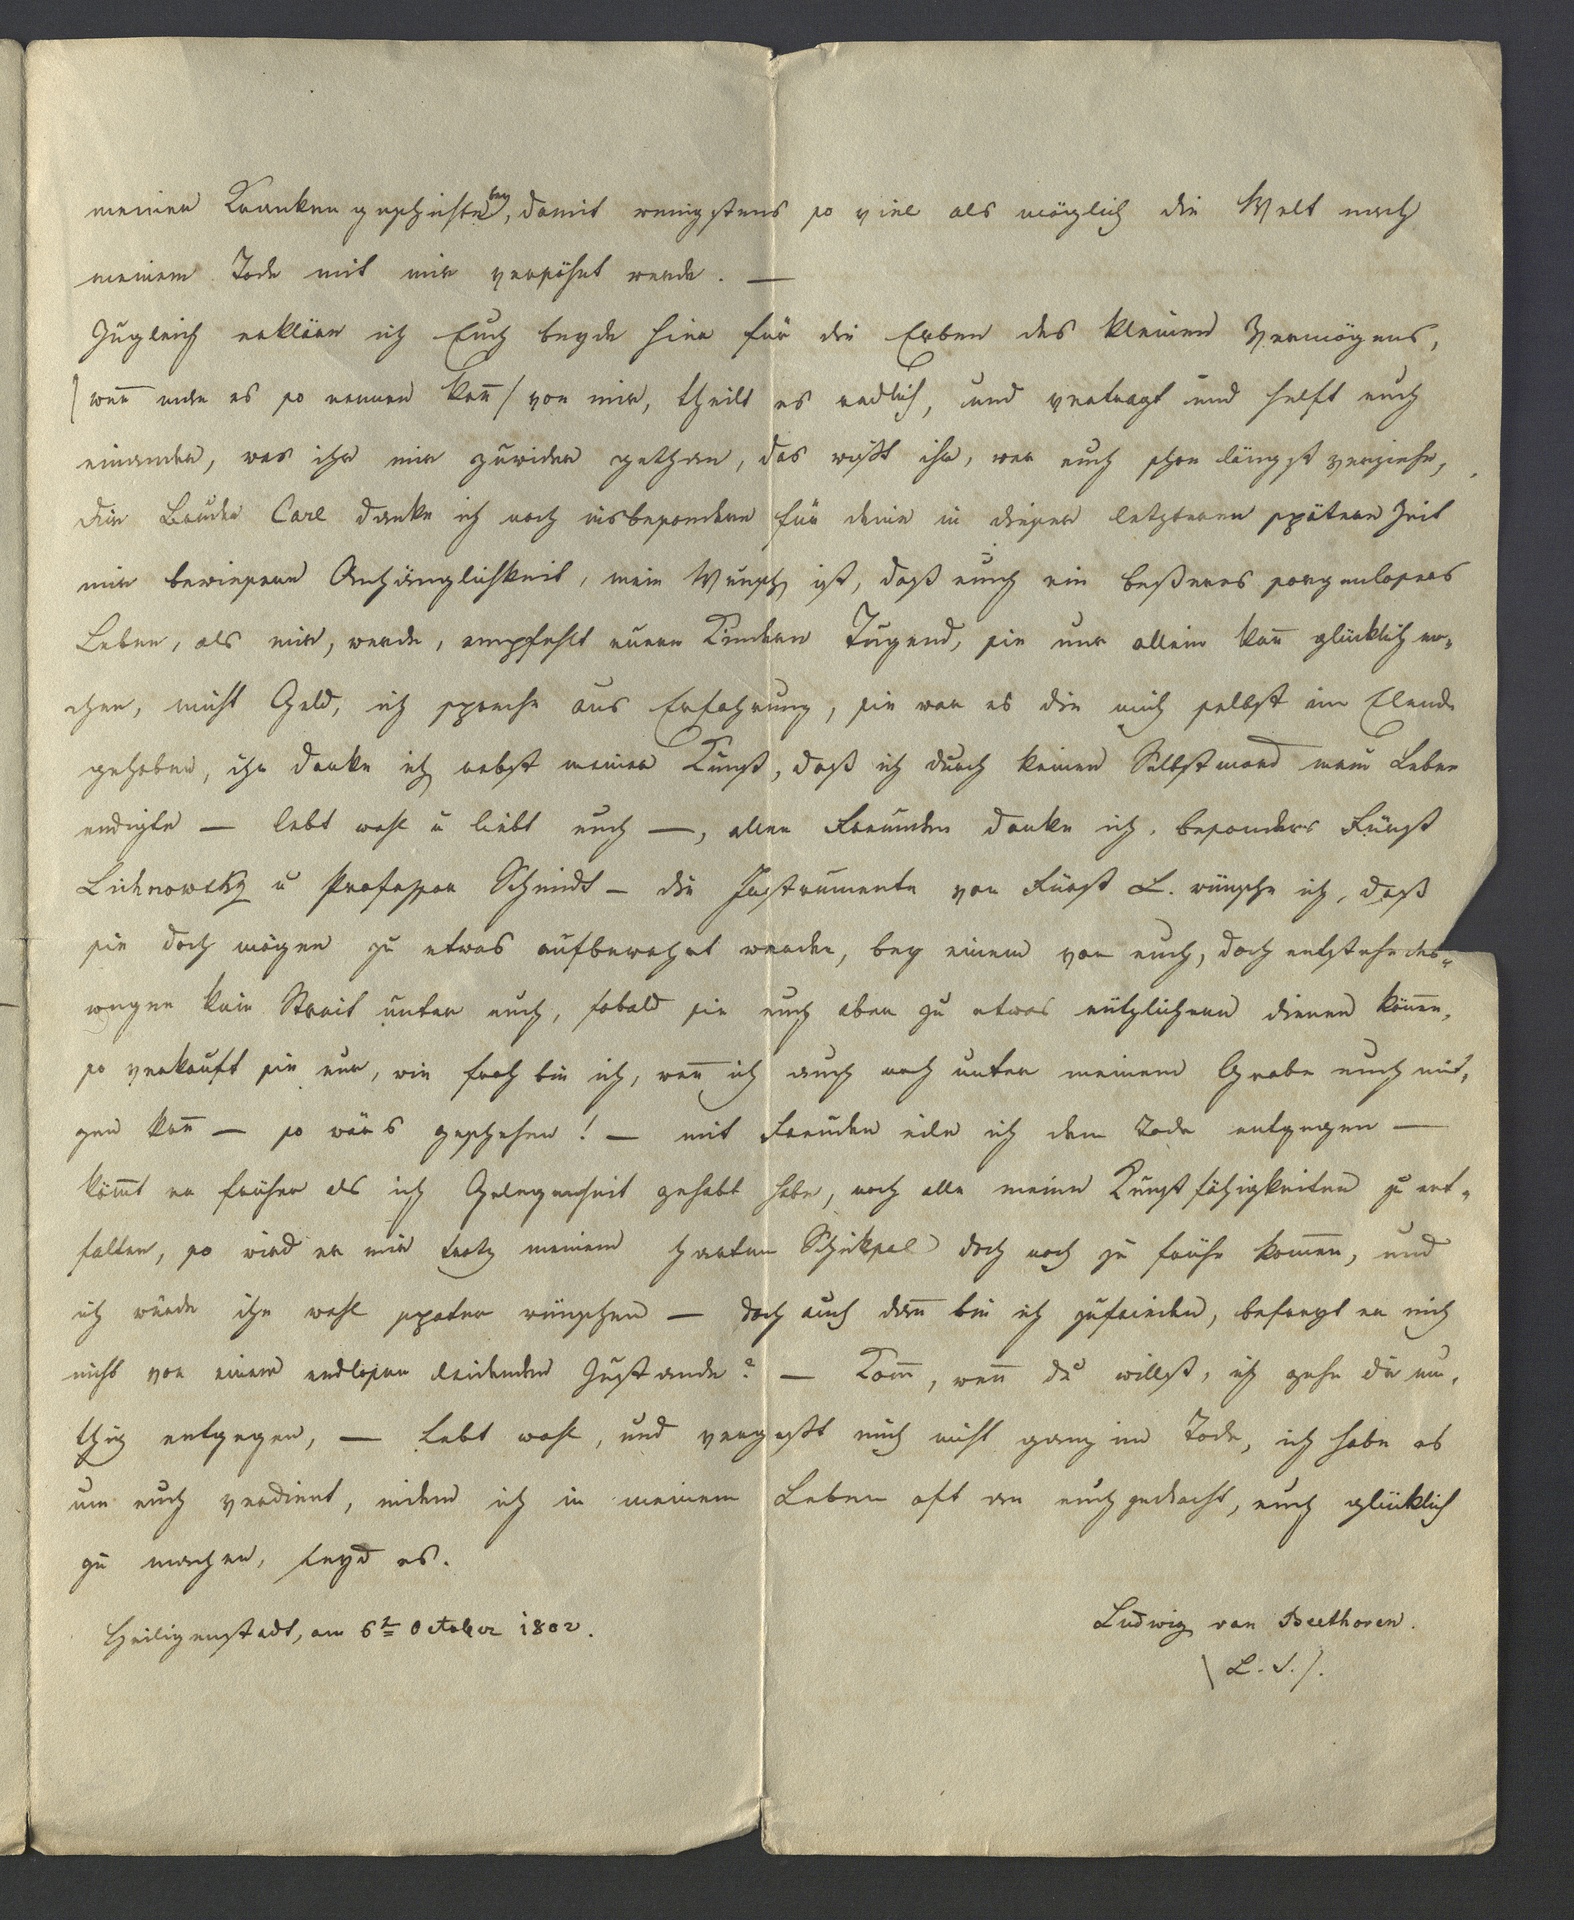 meiner Krankengeschichte bey, damit wenigstens so viel als möglich die Welt nach
meinem Tode mit mir versöhnt werde. —
Zugleich erkläre ich Euch beyde hier für die Erben des kleinen Vermögens,
/wen̄ man es so nennen kan̄/ von mir, theilt es redlich, und vertragt und helft euch
einander, was ihr mir zuwider gethan, das wißt ihr, war euch schon längst verziehn,
dir Bruder Carl danke ich noch insbesondere für deine in dieser letzteren spätern Zeit
mir bewiesene Anhänglichkeit, mein Wunsch ist, daß euch ein beßeres sorgenloseres
Leben, als mir, werde, empfehlt euren Kindern Tugend, sie nur allein kan̄ glücklich ma-
chen, nicht Geld, ich spreche aus Erfahrung, sie war es die mich selbst im Elende
gehoben, ihr danke ich nebst meiner Kunst, daß ich durch keinen Selbstmord mein Leben
endigte — lebt wohl u liebt euch —, allen Freunden danke ich, besonders Fürst
Lichnowsky u Professor Schmidt — die Instrumente von Fürst L. wünsche ich, daß
sie doch mögen zu etwas aufbewahrt werden, bey einem von euch, doch entstehe des-
wegen kein Streit unter euch, sobald sie euch aber zu etwas nützlicherm dienen kön̄en,
so verkauft sie nur, wie froh bin ich, wen̄ ich auch noch unter meinem Grabe euch nüt-
zen kan̄ — so wärs geschehen! — mit Freuden eile ich dem Tode entgegen —
köm̄t er früher als ich Gelegenheit gehabt habe, noch alle meine Kunstfähigkeiten zu ent-
falten, so wird er mir trotz meinem harten Schicksal doch noch zu frühe kom̄en, und
ich würde ihn wohl später wünschen — doch auch dan̄ bin ich zufrieden, befreyt er mich
nicht von einem endlosen leidenden Zustande? — Kom̄, wen̄ du willst, ich gehe dir mu-
thig entgegen, — Lebt wohl, und vergeßt mich nicht ganz im Tode, ich habe es
um euch verdient, indem ich in meinem Leben oft an euch gedacht, euch glücklich
zu machen, seyd es.
Heiligenstadt, am 6t October 1802.
Ludwig van Beethoven.
/L. S./.